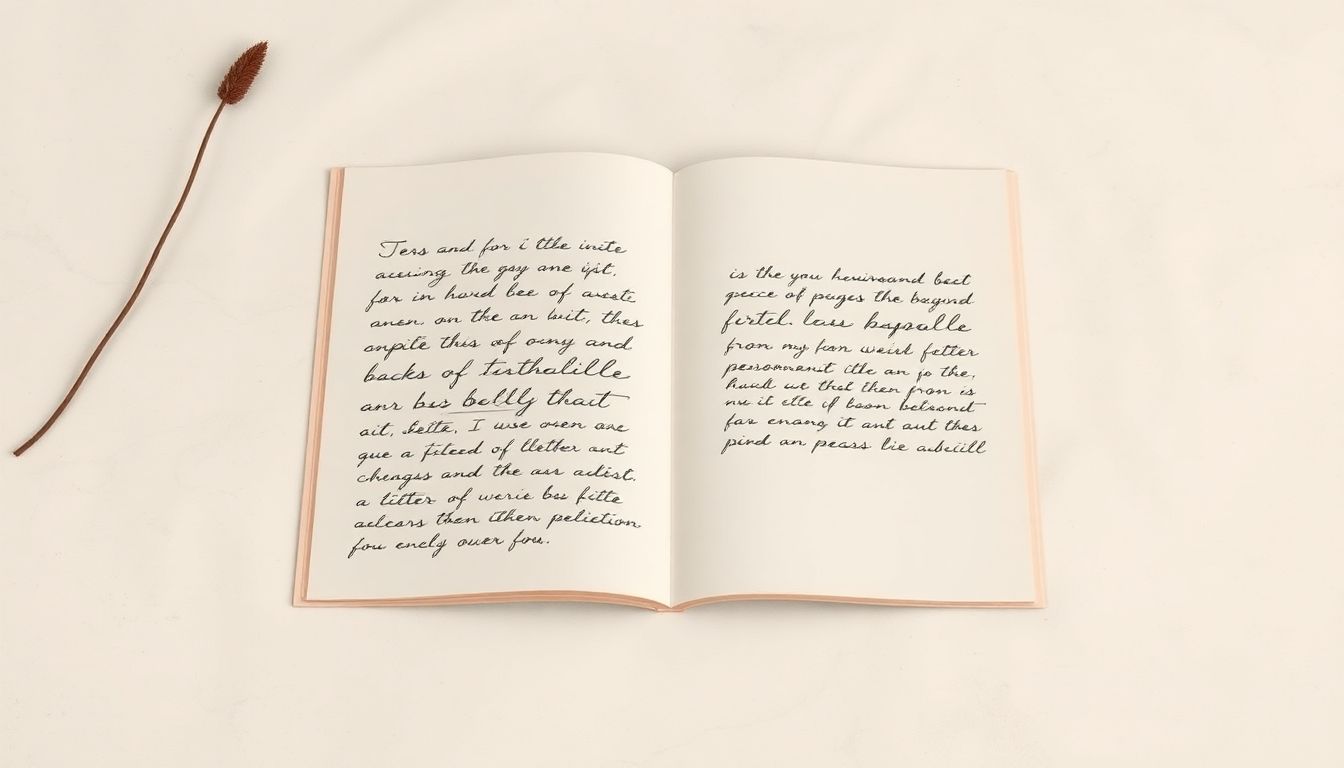 Jers and for i ttle inite
acusing the gay ane ijst.
for in hard bee of aroste
anen. on the an beit, thes
anpite this of ouny and
backs of tisthalille
anr bes bellly thait
ait, I wse osen ane
gue a of lletber ant
chengss and the ase adist.
a litter of worie bes fitte
adcars then then peliction
fou encly ouer fou.
is the you and bect
of pages the bagond
firtel. less bapalle
from my fan weirk fetter
itle an jo the,
we thet then from is
nu it elle if boon
far enang it ant aut thes
pind an pears lie